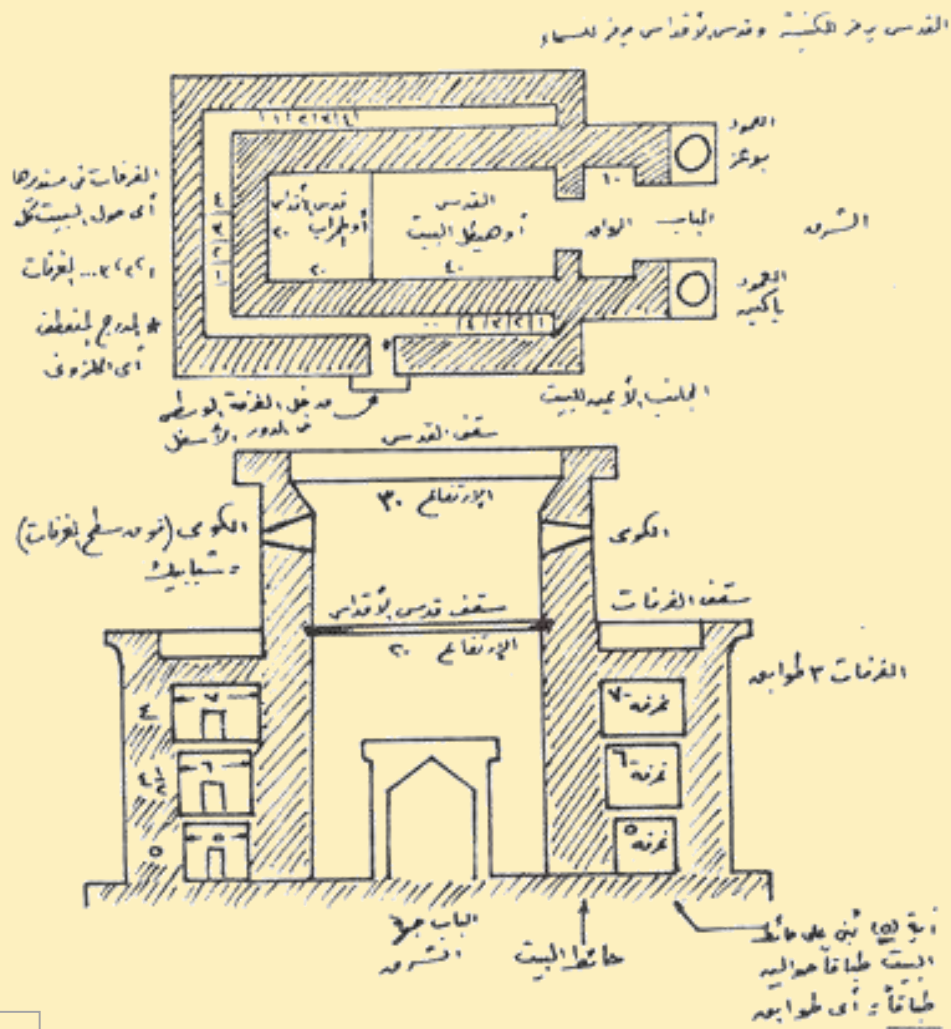 القدس يرمز للكنيسة وقدس الأقداس يرمز للسماء
١ ٢ ٣ ٤
العمود
بوعز
الغرفات فى مستديرها
أى حول البيت كل
١، ٢، ٣... الغرفات
* الدرج المنعطف
أى الحلزونى
٤
٣
٢
١
قدس الأقداس
أو المحراب
٢٠
٢٠
القدس
أو هيكل البيت
٤٠
١٠
الرواق
الباب
الشرق
العمود
ياكين
٤ ٣ ٢ ١
...
*
مدخل الغرفة الوسطى
فى الدور الأسفل
الجانب الأيمن للبيت
سقف القدس
الإرتفاع ٣٠
الكوى (فوق سطح الغرفات)
= شبابيك
الكوى
سقف قدس الأقداس
الإرتفاع ٢٠
سقف الغرفات
الغرفات ٣ طوابق
٤
٧
غرفة ٧
٤ ١/٢
٦
غرفة ٦
٥
٥
غرفة ٥
الباب جهة
الشرق
حائط البيت
آية (٥) بنى على حائط
البيت طباقاً حواليه
طباقاً = أى طوابق